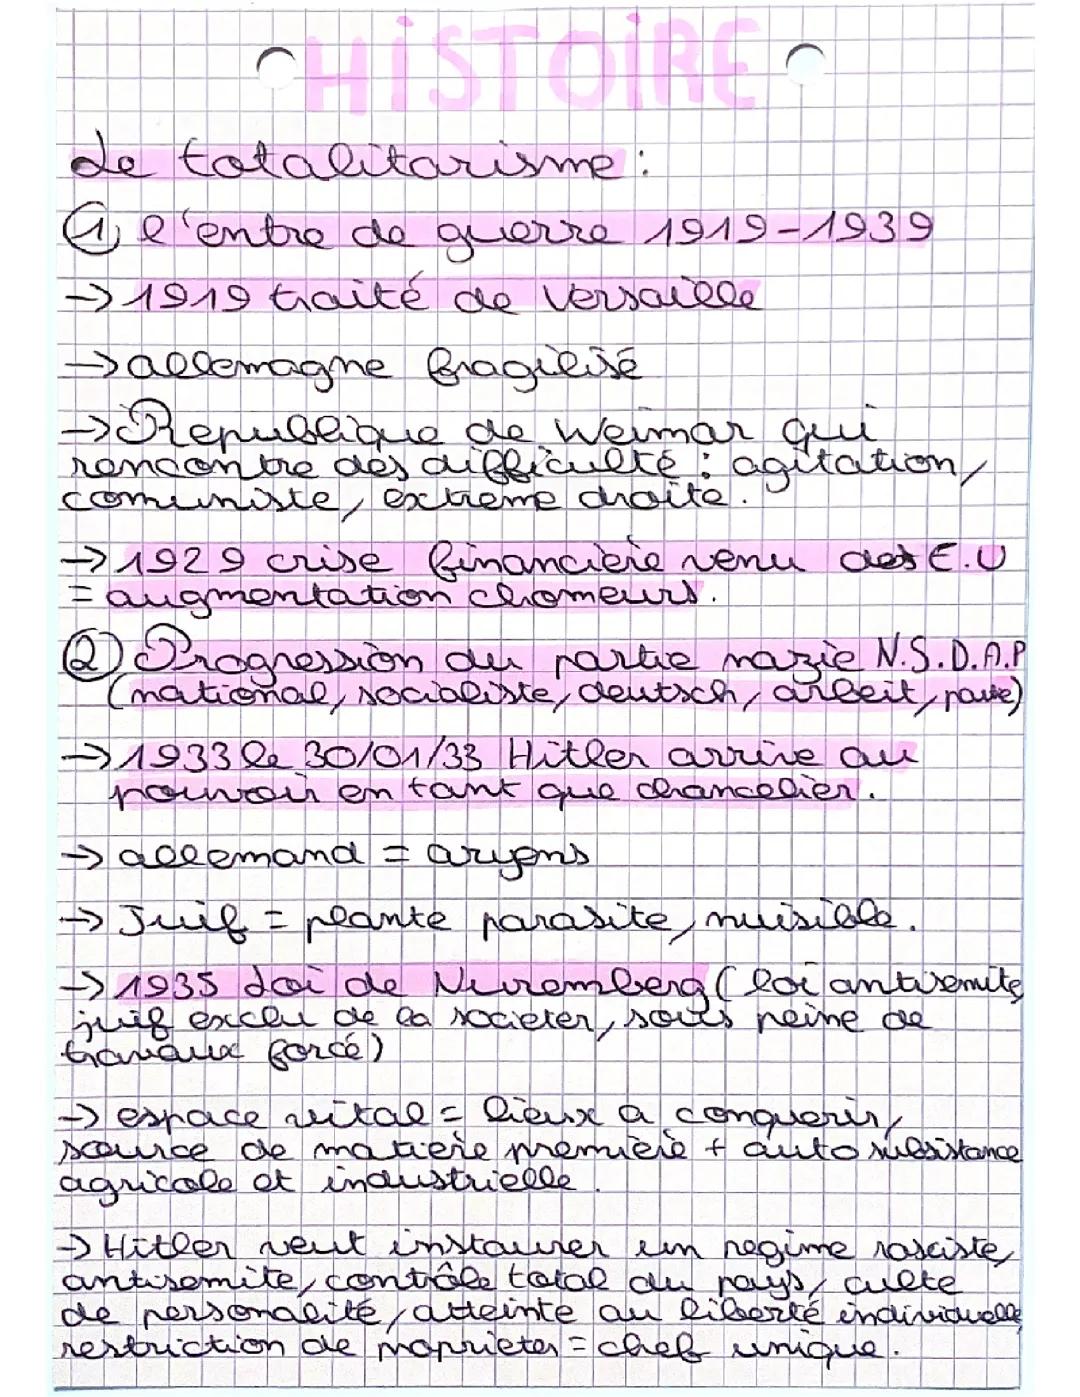 HISTOIRE
Le totalitarisme :
① l'entre de guerre 1919-1939
→ 1919 traité de Versaille
→ allemagne fragilisé
→ Republique de Weimar qui
rencontre des difficulté : agitation,
comuniste, extreme droite.
→ 1929 crise financière venu des E.U
= augmentation chomeurs.
② Progression du partie nazie N.S.D.A.P
(national, socialiste, deutsch, arbeit, partie)
→ 1933 le 30/01/33 Hitler arrive au
pouvoir en tant que chancelier.
→ allemand = aryens
→ Juif = plante parasite, nuisible.
→ 1935 Loi de Nuremberg (loi antisemite,
juif exclu de la societer, sous peine de
travaux forcé)
→ espace vital = lieux a conquerir,
source de matière première + auto subsistance
agricole et industrielle.
→ Hitler veut instaurer un regime rasciste,
antisemite, contrôle total du pays, culte
de personalité, atteinte au liberté individuelle,
restriction de proprieter = chef unique.